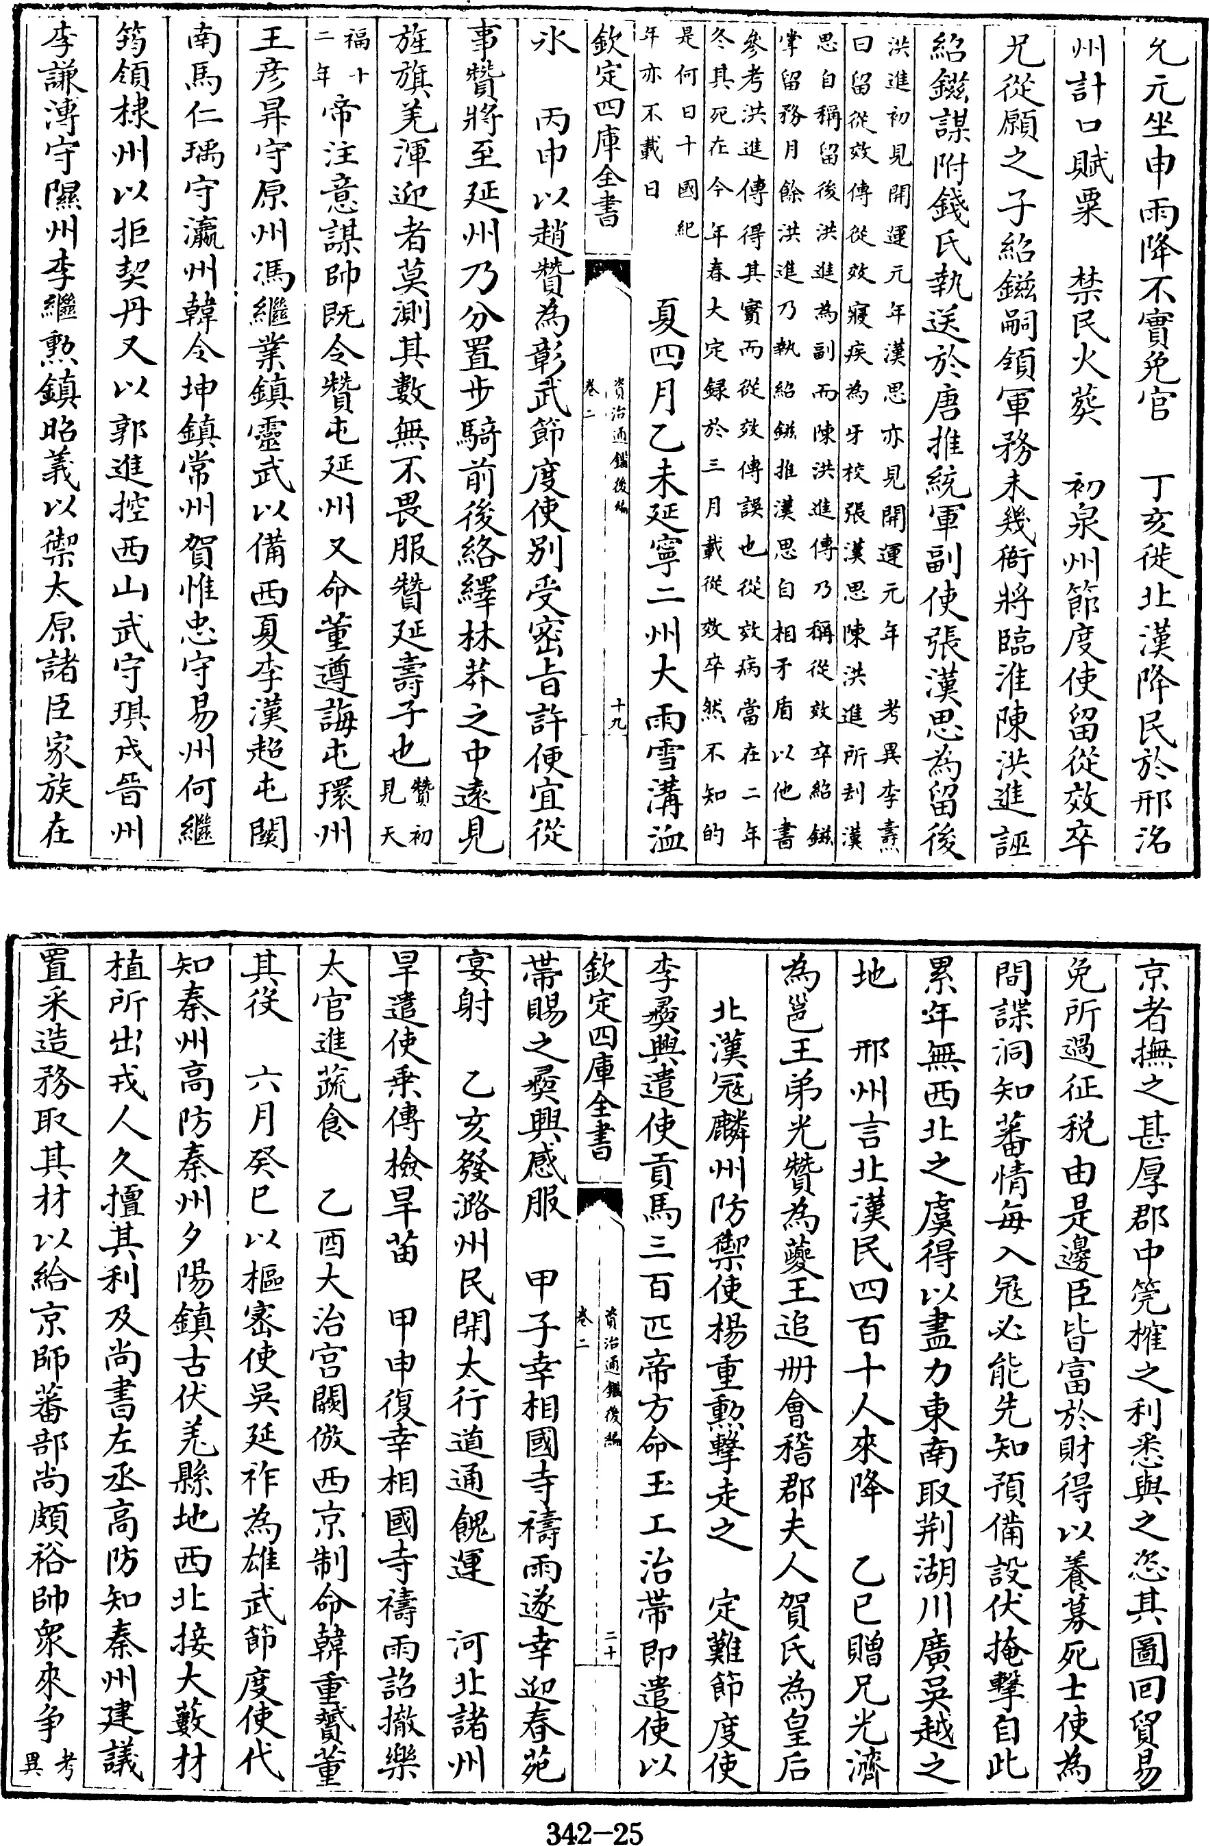 允元坐申雨降不實免官　丁亥徙北漢降民於邢洺
州計口賦粟　禁民火葬　初泉州節度使留從效卒
兄從願之子紹鎡嗣領軍務未幾衙將臨淮陳洪進誣
紹鎡謀附錢氏執送於唐推統軍副使張漢思為留後
洪進初見開運元年漢思亦見開運元年　考異李燾
曰留從效傳從效寢疾為牙校張漢思陳洪進所刦漢
思自稱留後洪進為副而陳洪進傳乃稱從效卒紹鎡
掌留務月餘洪進乃執紹鎡推漢思自相矛盾以他書
參考洪進傳得其實而從效傳誤也從效病當在二年
冬其死在今年春大定録於三月載從效卒然不知的
是何日十國紀
年亦不載日
夏四月乙未延寧二州大雨雪溝洫
欽定四庫全書
資治通鑑後編
卷二
十九
氷　丙申以趙贊為彰武節度使别受密旨許便宜從
事贊將至延州乃分置步騎前後絡繹林莽之中遠見
旌旗羌渾迎者莫測其數無不畏服贊延壽子也
贊初
見天
福十
二年
帝注意謀帥既令贊屯延州又命董遵誨屯環州
王彦昇守原州馮繼業鎮靈武以備西夏李漢超屯關
南馬仁瑀守瀛州韓令坤鎮常州賀惟忠守易州何繼
筠領棣州以拒契丹又以郭進控西山武守琪戍晉州
李謙溥守隰州李繼勲鎮昭義以禦太原諸臣家族在
京者撫之甚厚郡中筦榷之利悉與之恣其圖回貿易
免所過征税由是邊臣皆富於財得以養募死士使為
間諜洞知蕃情每入冦必能先知預備設伏掩擊自此
累年無西北之虞得以盡力東南取荆湖川廣吳越之
地　邢州言北漢民四百十人來降　乙巳贈兄光濟
為邕王弟光贊為夔王追册會稽郡夫人賀氏為皇后
北漢冦麟州防禦使楊重勲擊走之　定難節度使
李彞興遣使貢馬三百匹帝方命玉工治帶即遣使以
欽定四庫全書
資治通鑑後編
卷二
二十
帶賜之彞興感服　甲子幸相國寺禱雨遂幸迎春苑
宴射　乙亥發潞州民開太行道通餽運　河北諸州
旱遣使乗傳檢旱苗　甲申復幸相國寺禱雨詔撤樂
太官進蔬食　乙酉大治宫闕倣西京制命韓重贇董
其役　六月癸巳以樞宻使吳延祚為雄武節度使代
知秦州高防秦州夕陽鎮古伏羌縣地西北接大藪材
植所出戎人久擅其利及尚書左丞高防知秦州建議
置采造務取其材以給京師蕃部尚頗裕帥衆來争
考
異
342-25